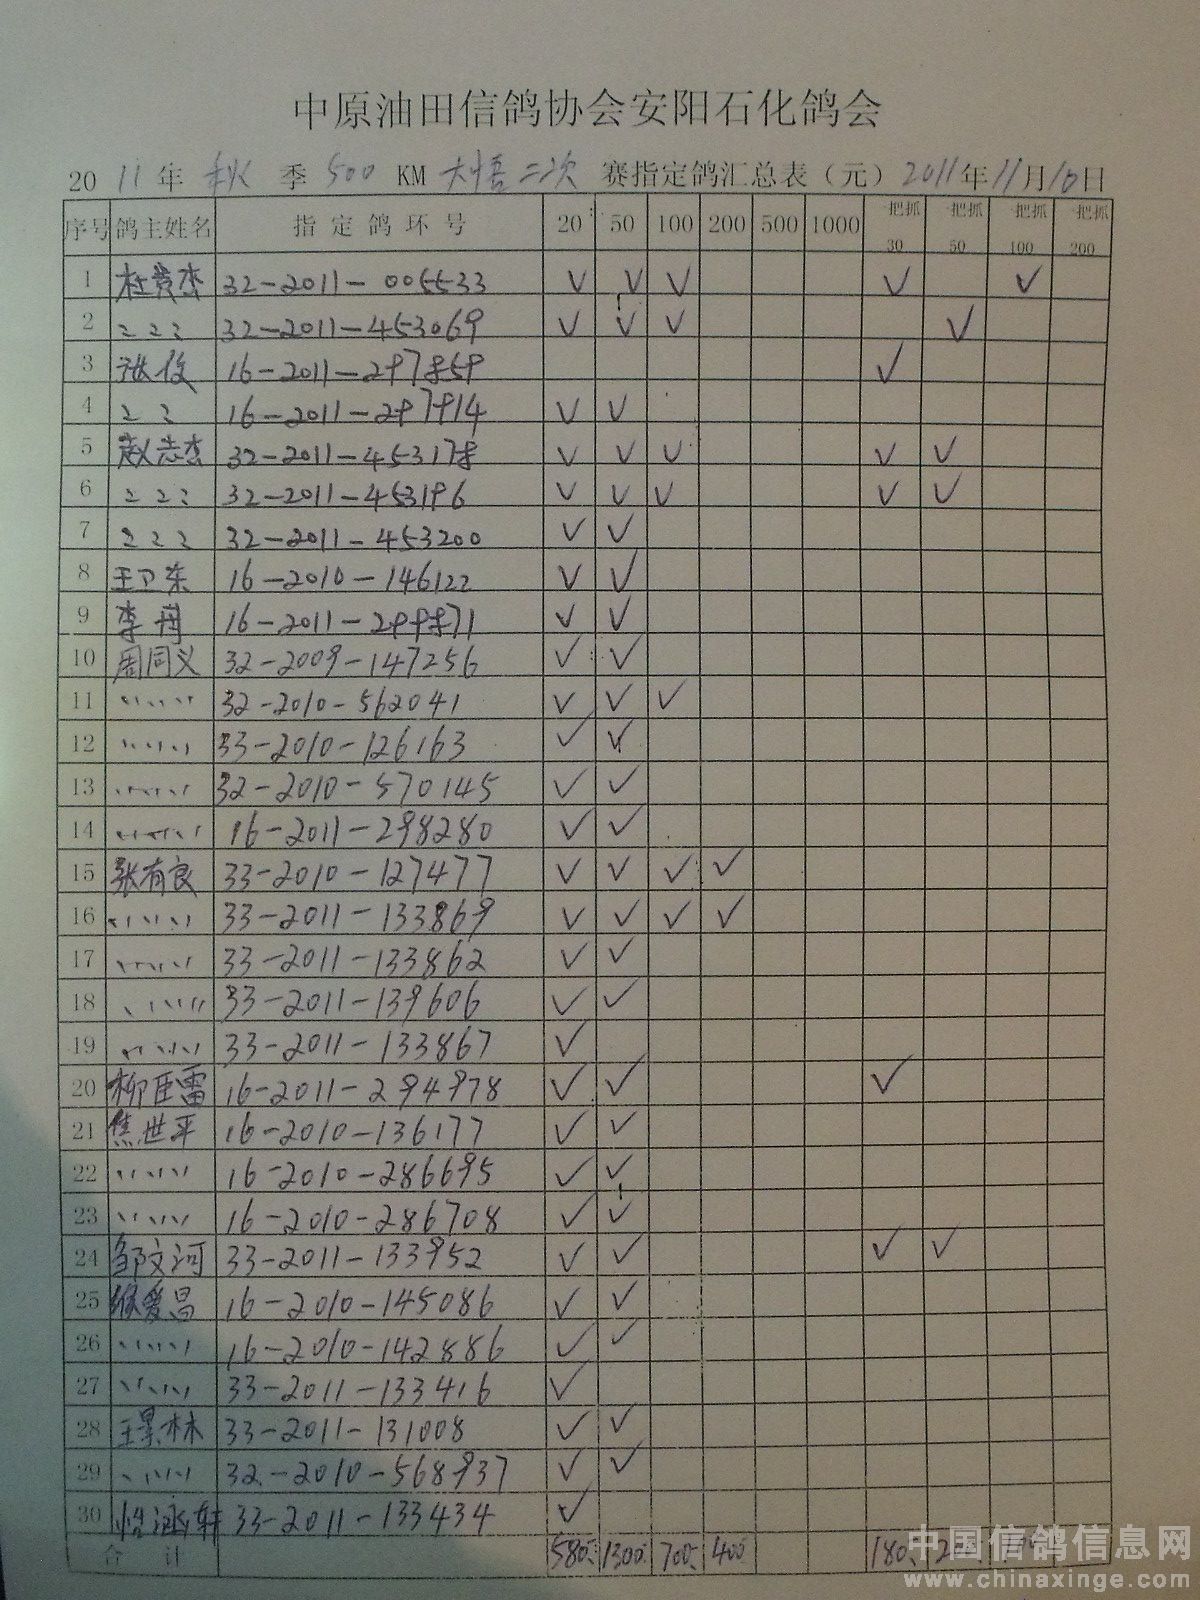 中原油田信鸽协会安阳石化鸽会
2011年 秋 季 500 KM 大悟二次 赛指定鸽汇总表（元）2011年11月10日
序号 鸽主姓名 指定鸽环号 20 50 100 200 500 1000 一把抓30 一把抓50 一把抓100 一把抓200
1 杜贵杰 32-2011-005533 √ √ √ √ √
2 〃〃〃 32-2011-453069 √ √ √ √
3 张俊 16-2011-297859 √
4 〃〃 16-2011-297914 √ √
5 赵志杰 32-2011-453178 √ √ √ √ √
6 〃〃〃 32-2011-453196 √ √ √ √ √
7 〃〃〃 32-2011-453200 √ √
8 王卫东 16-2010-146122 √ √
9 李 16-2011-299871 √ √
10 周同义 32-2009-147256 √ √
11 〃〃〃 32-2010-562041 √ √ √
12 〃〃〃 33-2010-126163 √ √
13 〃〃〃 32-2010-570145 √ √
14 〃〃〃 16-2011-298280 √ √
15 张有良 33-2010-127477 √ √ √ √
16 〃〃〃 33-2011-133869 √ √ √ √
17 〃〃〃 33-2011-133862 √ √
18 〃〃〃 33-2011-139606 √ √
19 〃〃〃 33-2011-133867 √
20 柳臣雷 16-2011-294978 √ √ √
21 焦世平 16-2010-136177 √ √
22 〃〃〃 16-2010-286695 √ √
23 〃〃〃 16-2010-286708 √ √
24 邹文河 33-2011-133952 √ √ √ √
25 侯爱昌 16-2010-145086 √ √
26 〃〃〃 16-2010-142886 √ √
27 〃〃〃 33-2011-133416 √
28 王景林 33-2011-131008 √ √
29 〃〃〃 32-2010-568937 √ √
30 轩 33-2011-133434 √
合 计 580 1300 700 400 180
中国信鸽信息网
www.chinaxinge.com